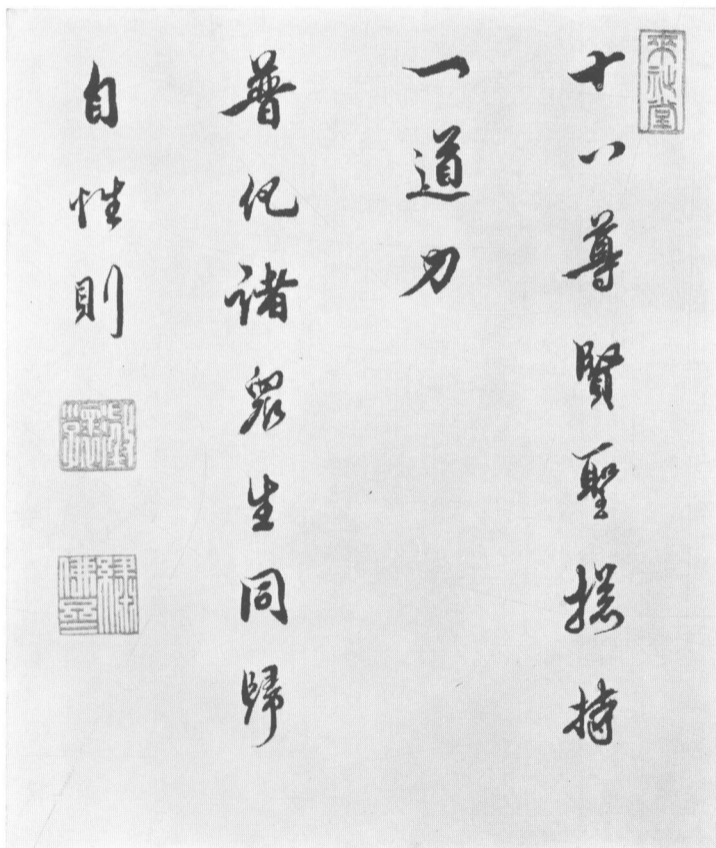 十八尊賢聖捴持
一道力
普化諸衆生同歸
自性則